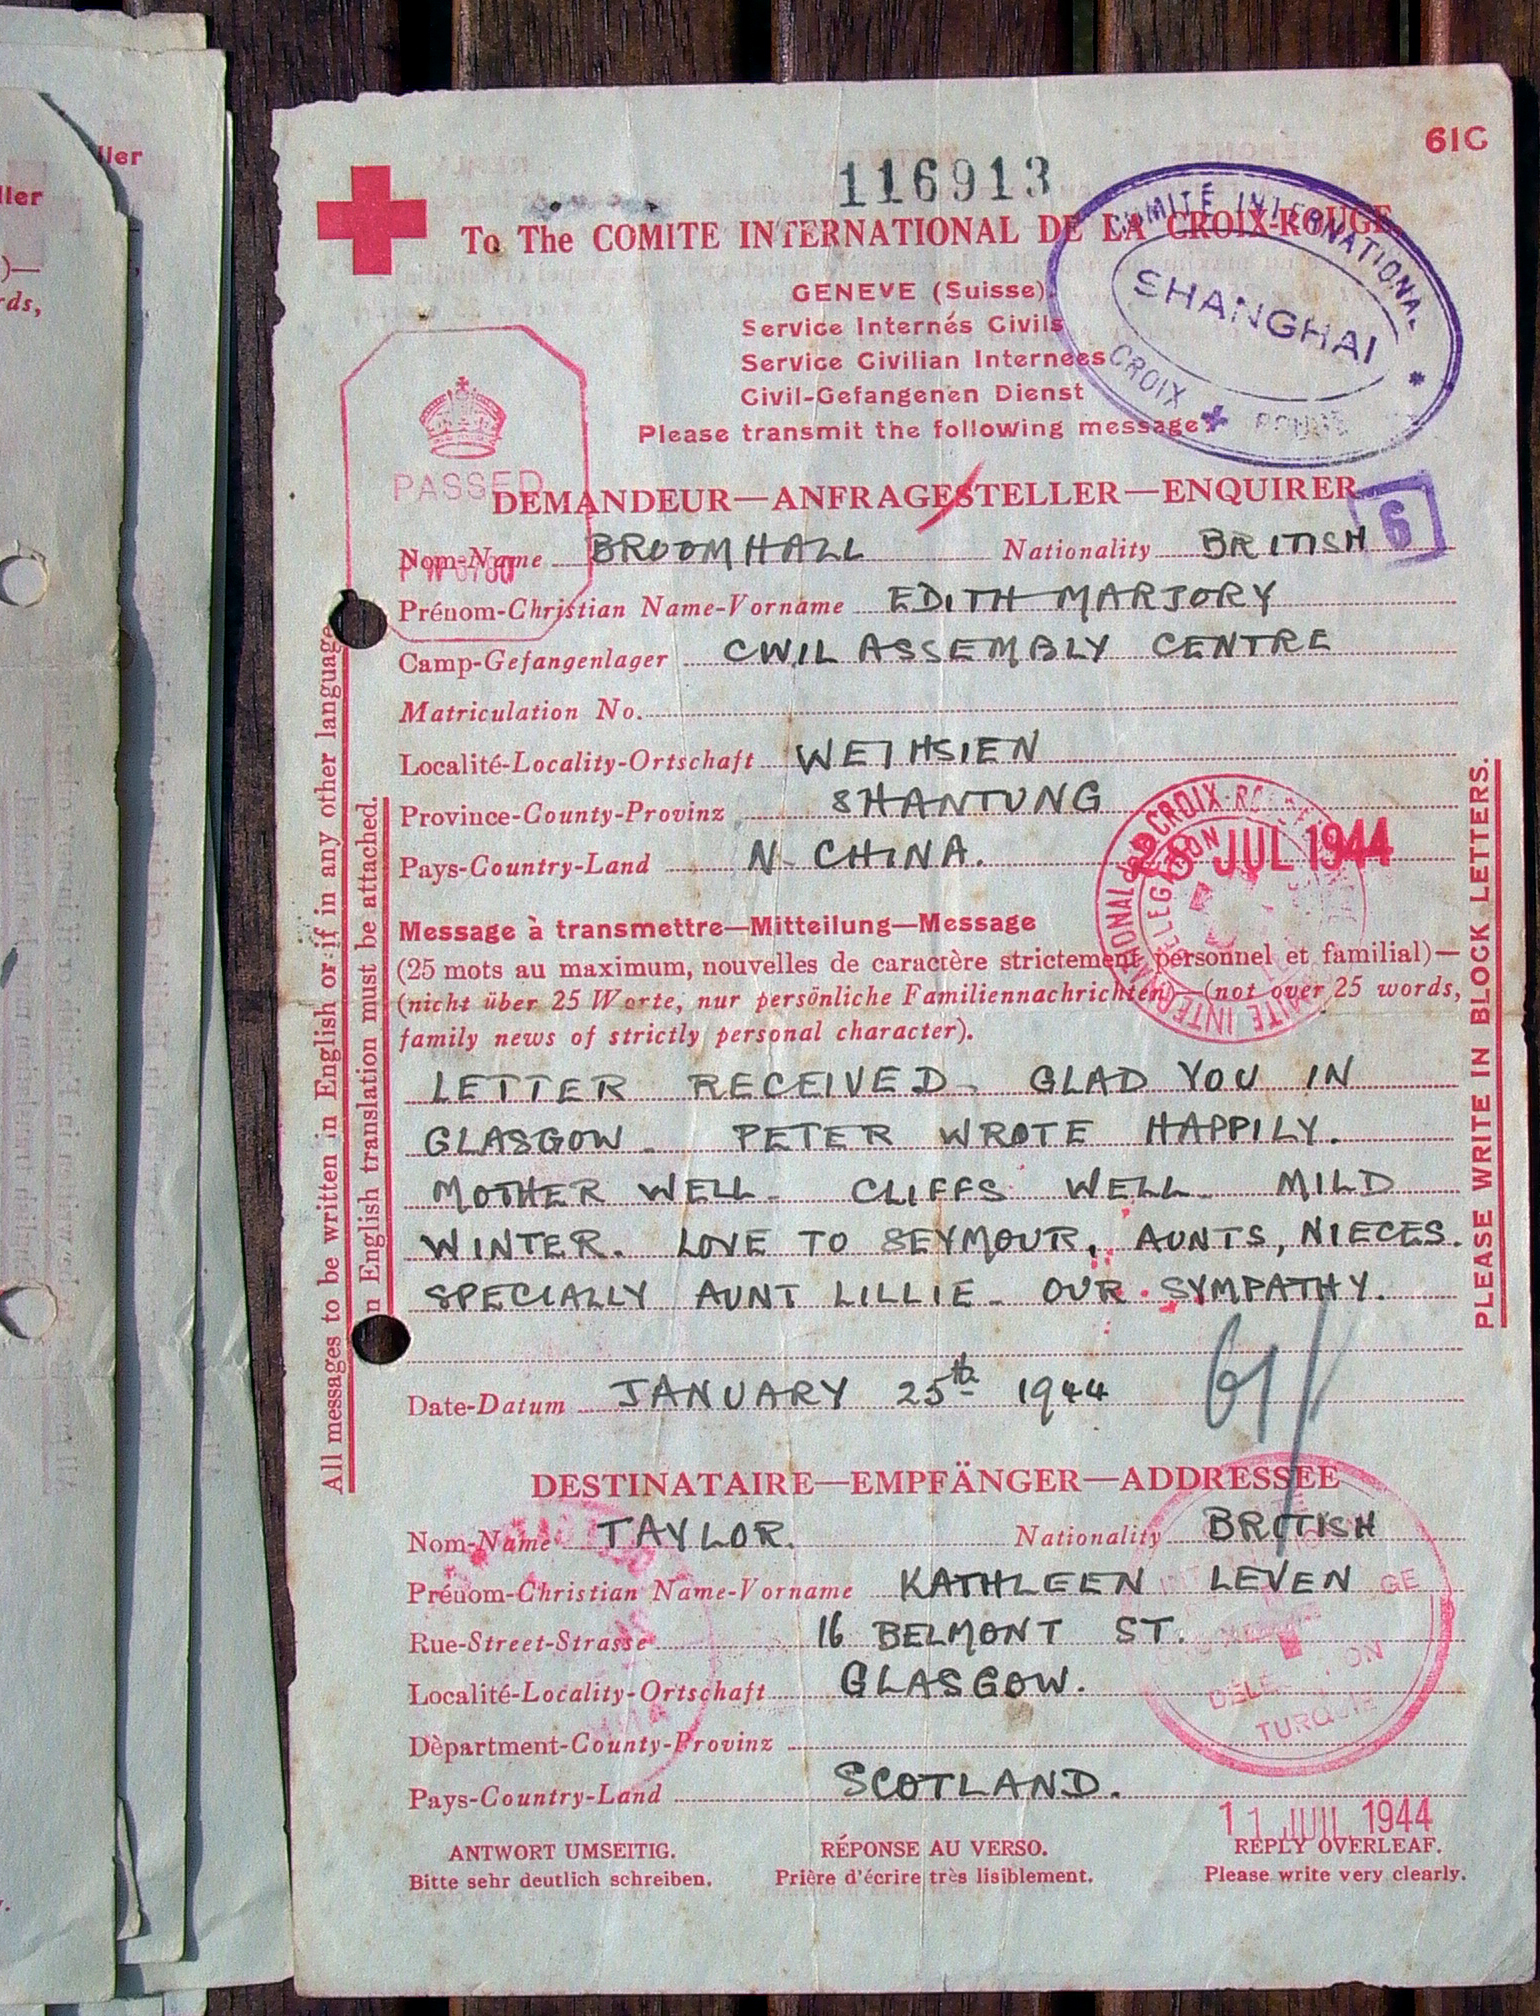 ller
ller
)—
rds,
61C
116913
To The COMITE INTERNATIONAL DE LA CROIX-ROUGE
COMITÉ INTERNATIONAL
SHANGHAI
CROIX ROUGE
GENEVE (Suisse)
Service Internés Civils
Service Civilian Internees
Civil-Gefangenen Dienst
Please transmit the following message
PASSED
DEMANDEUR—ANFRAGESTELLER—ENQUIRER
6
Nom-Name BROOMHALL Nationality BRITISH
Prénom-Christian Name-Vorname EDITH MARJORY
Camp-Gefangenlager CIVIL ASSEMBLY CENTRE
Matriculation No.
Localité-Locality-Ortschaft WEIHSIEN
Province-County-Provinz SHANTUNG
Pays-Country-Land N. CHINA.
28 JUL 1944
Message à transmettre—Mitteilung—Message
(25 mots au maximum, nouvelles de caractère strictement personnel et familial)—
(nicht über 25 Worte, nur persönliche Familiennachrichten)—(not over 25 words,
family news of strictly personal character).
LETTER RECEIVED. GLAD YOU IN
GLASGOW. PETER WROTE HAPPILY.
MOTHER WELL. CLIFFS WELL. MILD
WINTER. LOVE TO SEYMOUR, AUNTS, NIECES.
SPECIALLY AUNT LILLIE. OUR SYMPATHY.
Date-Datum JANUARY 25th 1944
61
DESTINATAIRE—EMPFÄNGER—ADDRESSEE
Nom-Name TAYLOR. Nationality BRITISH
Prénom-Christian Name-Vorname KATHLEEN LEVEN
Rue-Street-Strasse 16 BELMONT ST.
Localité-Locality-Ortschaft GLASGOW.
Dèpartment-County-Provinz
Pays-Country-Land SCOTLAND.
TURQUIE
11 JUIL 1944
ANTWORT UMSEITIG. RÉPONSE AU VERSO. REPLY OVERLEAF.
Bitte sehr deutlich schreiben. Prière d'écrire très lisiblement. Please write very clearly.
All messages to be written in English or if in any other language
n English translation must be attached.
PLEASE WRITE IN BLOCK LETTERS.